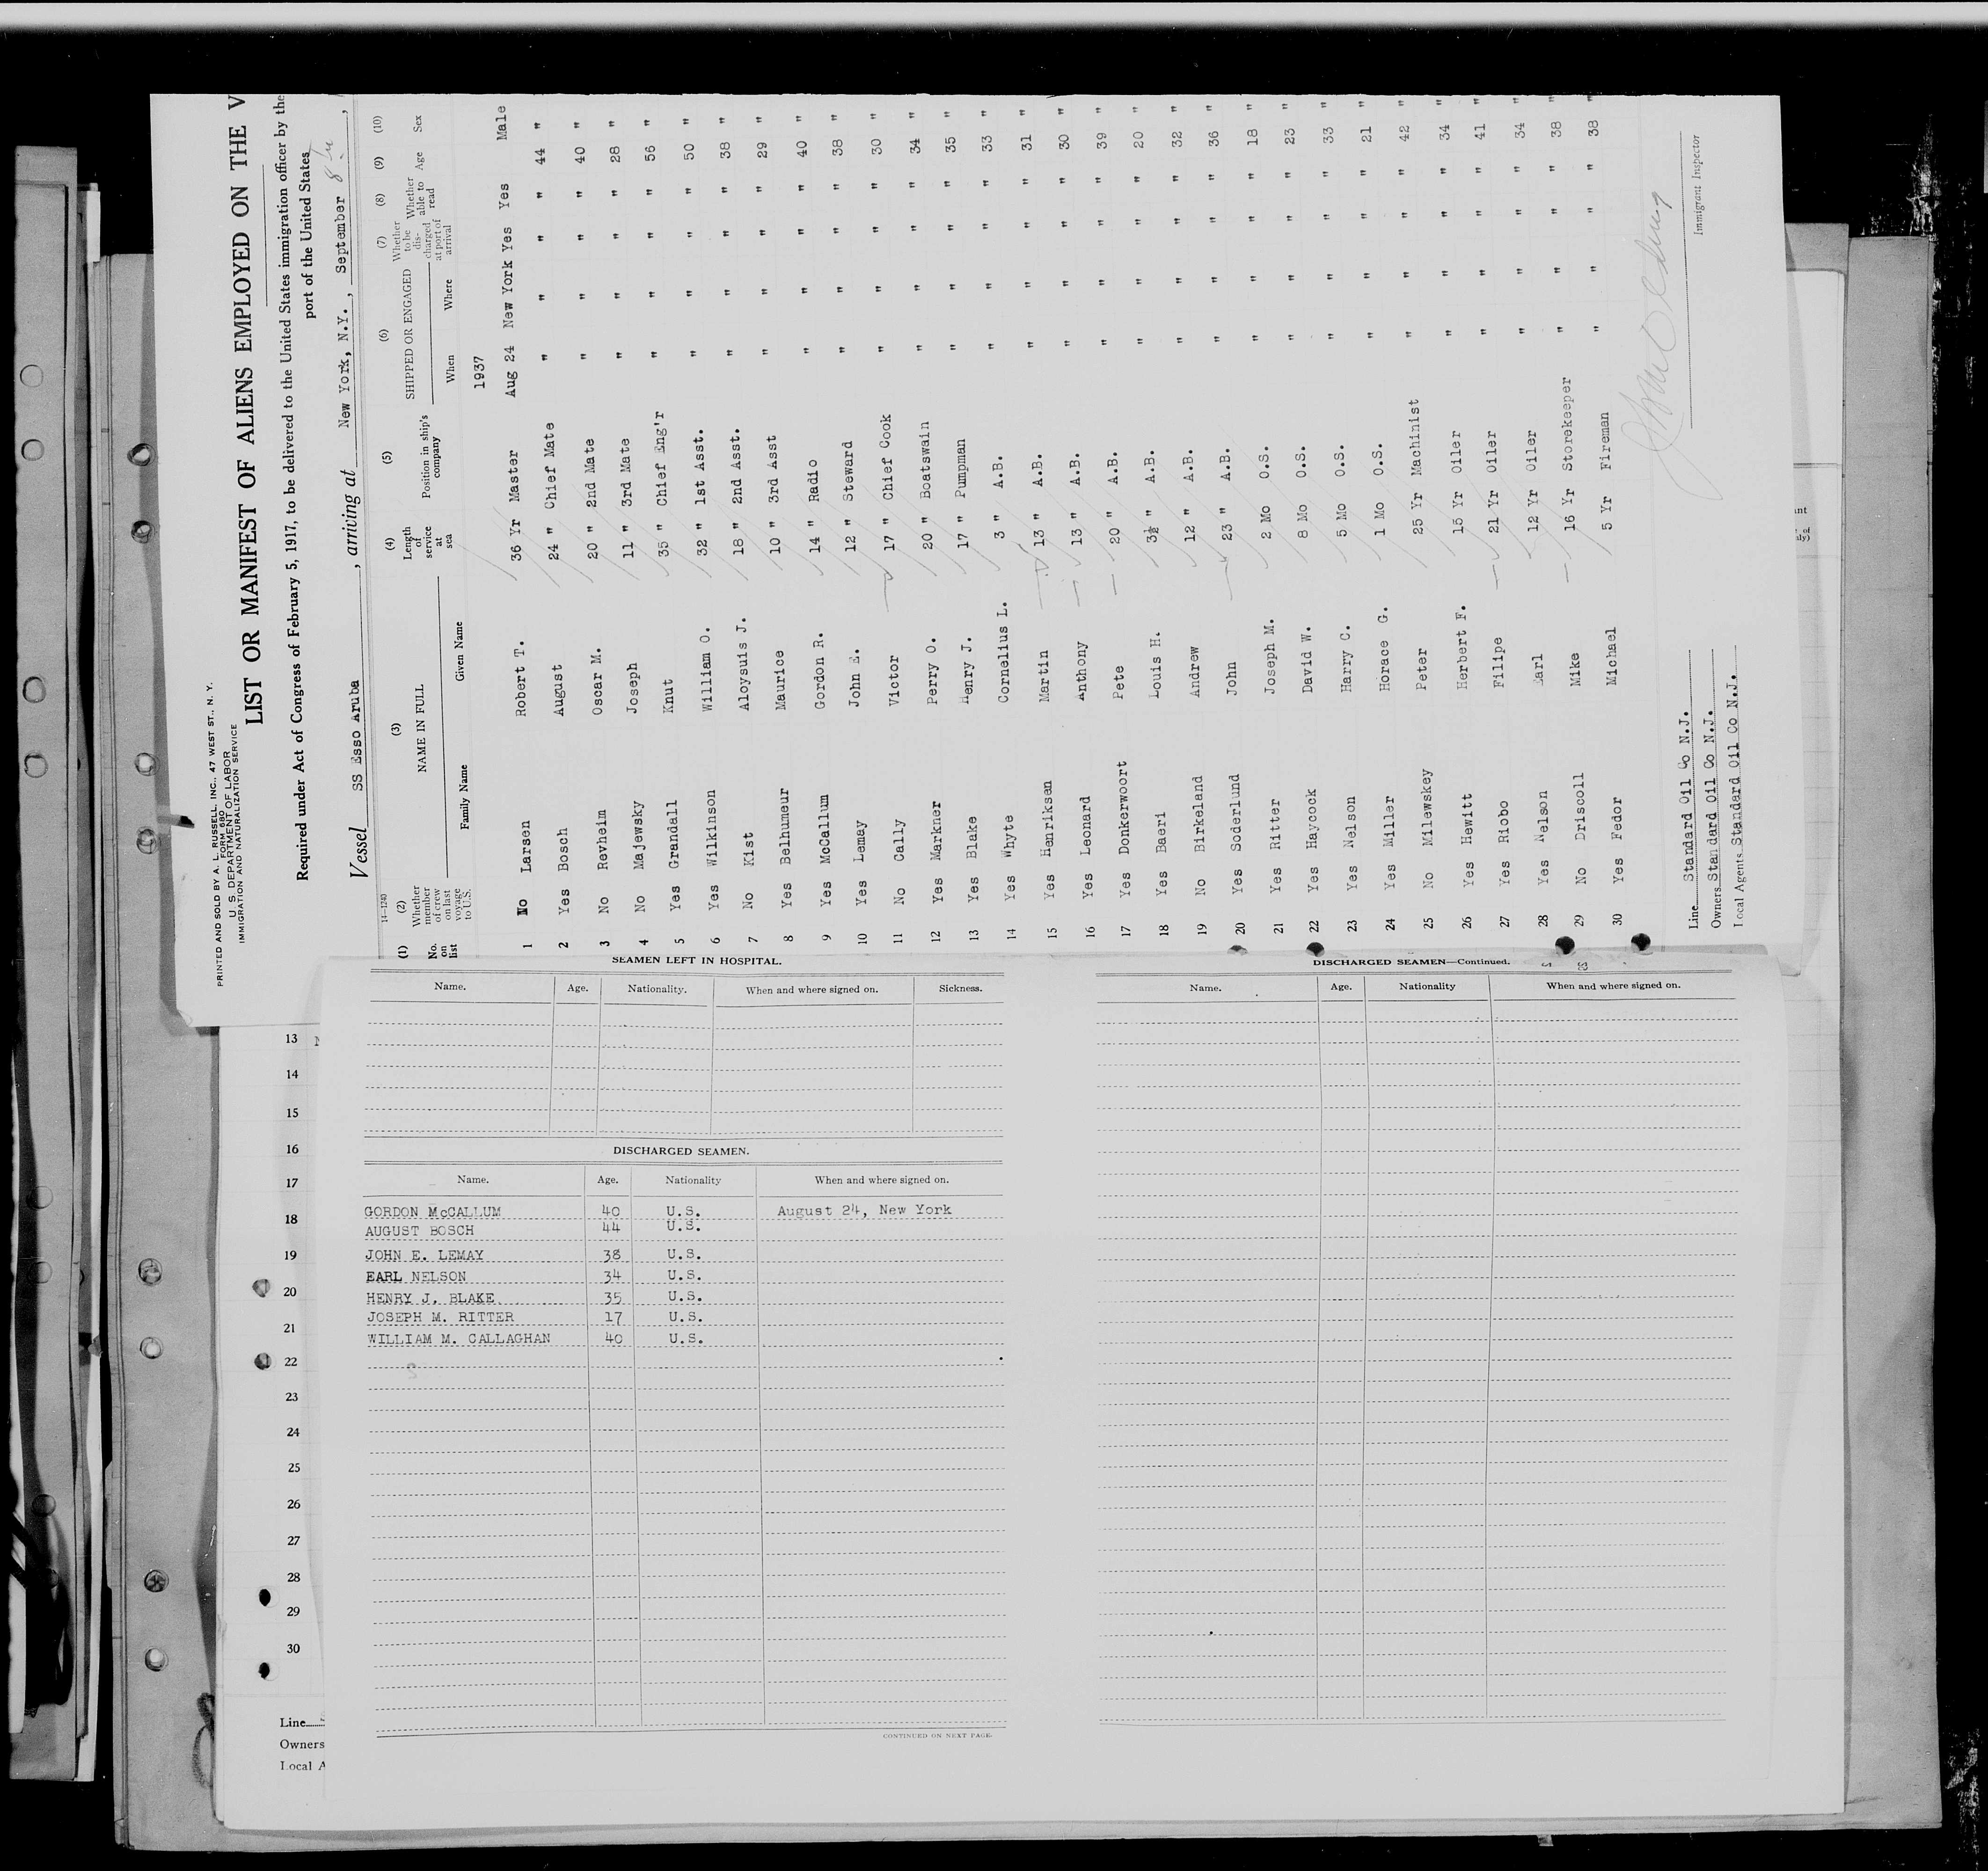 PRINTED AND SOLD BY A. L. RUSSELL, INC., 47 WEST ST., N. Y.
FORM 680
U. S. DEPARTMENT OF LABOR
IMMIGRATION AND NATURALIZATION SERVICE
LIST OR MANIFEST OF ALIENS EMPLOYED ON THE V
Required under Act of Congress of February 5, 1917, to be delivered to the United States immigration officer by the
port of the United States
Vessel SS Esso Aruba, arriving at New York, N.Y., September 8th,
14—1240
(1) (2) (3) (4) (5) (6) (7) (8) (9) (10)
No. on list
Whether member of crew on last voyage to U.S.
NAME IN FULL
Family Name Given Name
Length of service at sea
Position in ship's company
SHIPPED OR ENGAGED
When Where
Whether to be discharged at port of arrival
Whether able to read
Age
Sex
1937
1 No Larsen Robert T. 36 Yr Master Aug 24 New York Yes Yes Male
2 Yes Bosch August 24 " Chief Mate " " " " 44 "
3 No Revheim Oscar M. 20 " 2nd Mate " " " " 40 "
4 No Majewsky Joseph 11 " 3rd Mate " " " " 28 "
5 Yes Grandall Knut 35 " Chief Eng'r " " " " 56 "
6 Yes Wilkinson William O. 32 " 1st Asst. " " " " 50 "
7 No Kist Aloysuis J. 18 " 2nd Asst. " " " " 38 "
8 Yes Belhumeur Maurice 10 " 3rd Asst " " " " 29 "
9 Yes McCallum Gordon R. 14 " Radio " " " " 40 "
10 Yes Lemay John E. 12 " Steward " " " " 38 "
11 No Cally Victor 17 " Chief Cook " " " " 30 "
12 Yes Markner Perry O. 20 " Boatswain " " " " 34 "
13 Yes Blake Henry J. 17 " Pumpman " " " " 35 "
14 Yes Whyte Cornelius L. 3 " A.B. " " " " 33 "
15 Yes Henriksen Martin 13 " A.B. " " " " 31 "
16 Yes Leonard Anthony 13 " A.B. " " " " 30 "
17 Yes Donkerwoort Pete 20 " A.B. " " " " 39 "
18 Yes Baeri Louis H. 3½ " A.B. " " " " 20 "
19 No Birkeland Andrew 12 " A.B. " " " " 32 "
20 Yes Soderlund John 23 " A.B. " " " " 36 "
21 Yes Ritter Joseph M. 2 Mo O.S. " " " " 18 "
22 Yes Haycock David W. 8 Mo O.S. " " " " 23 "
23 Yes Nelson Harry C. 5 Mo O.S. " " " " 33 "
24 Yes Miller Horace G. 1 Mo O.S. " " " " 21 "
25 No Milewskey Peter 25 Yr Machinist " " " " 42 "
26 Yes Hewitt Herbert F. 15 Yr Oiler " " " " 34 "
27 Yes Riobo Filipe 21 Yr Oiler " " " " 41 "
28 Yes Nelson Earl 12 Yr Oiler " " " " 34 "
29 No Driscoll Mike 16 Yr Storekeeper " " " " 38 "
30 Yes Fedor Michael 5 Yr Fireman " " " " 38 "
Line Standard Oil Co N.J.
Owners Standard Oil Co N.J.
Local Agents Standard Oil Co N.J.
Immigrant Inspector
SEAMEN LEFT IN HOSPITAL.
Name. Age. Nationality. When and where signed on. Sickness.
DISCHARGED SEAMEN.
Name. Age. Nationality When and where signed on.
GORDON McCALLUM 40 U.S. August 24, New York
AUGUST BOSCH 44 U.S.
JOHN E. LEMAY 38 U.S.
EARL NELSON 34 U.S.
HENRY J. BLAKE 35 U.S.
JOSEPH M. RITTER 17 U.S.
WILLIAM M. CALLAGHAN 40 U.S.
CONTINUED ON NEXT PAGE.
DISCHARGED SEAMEN—Continued.
Name. Age. Nationality When and where signed on.
13
14
15
16
17
18
19
20
21
22
23
24
25
26
27
28
29
30
Line
Owners
Local A